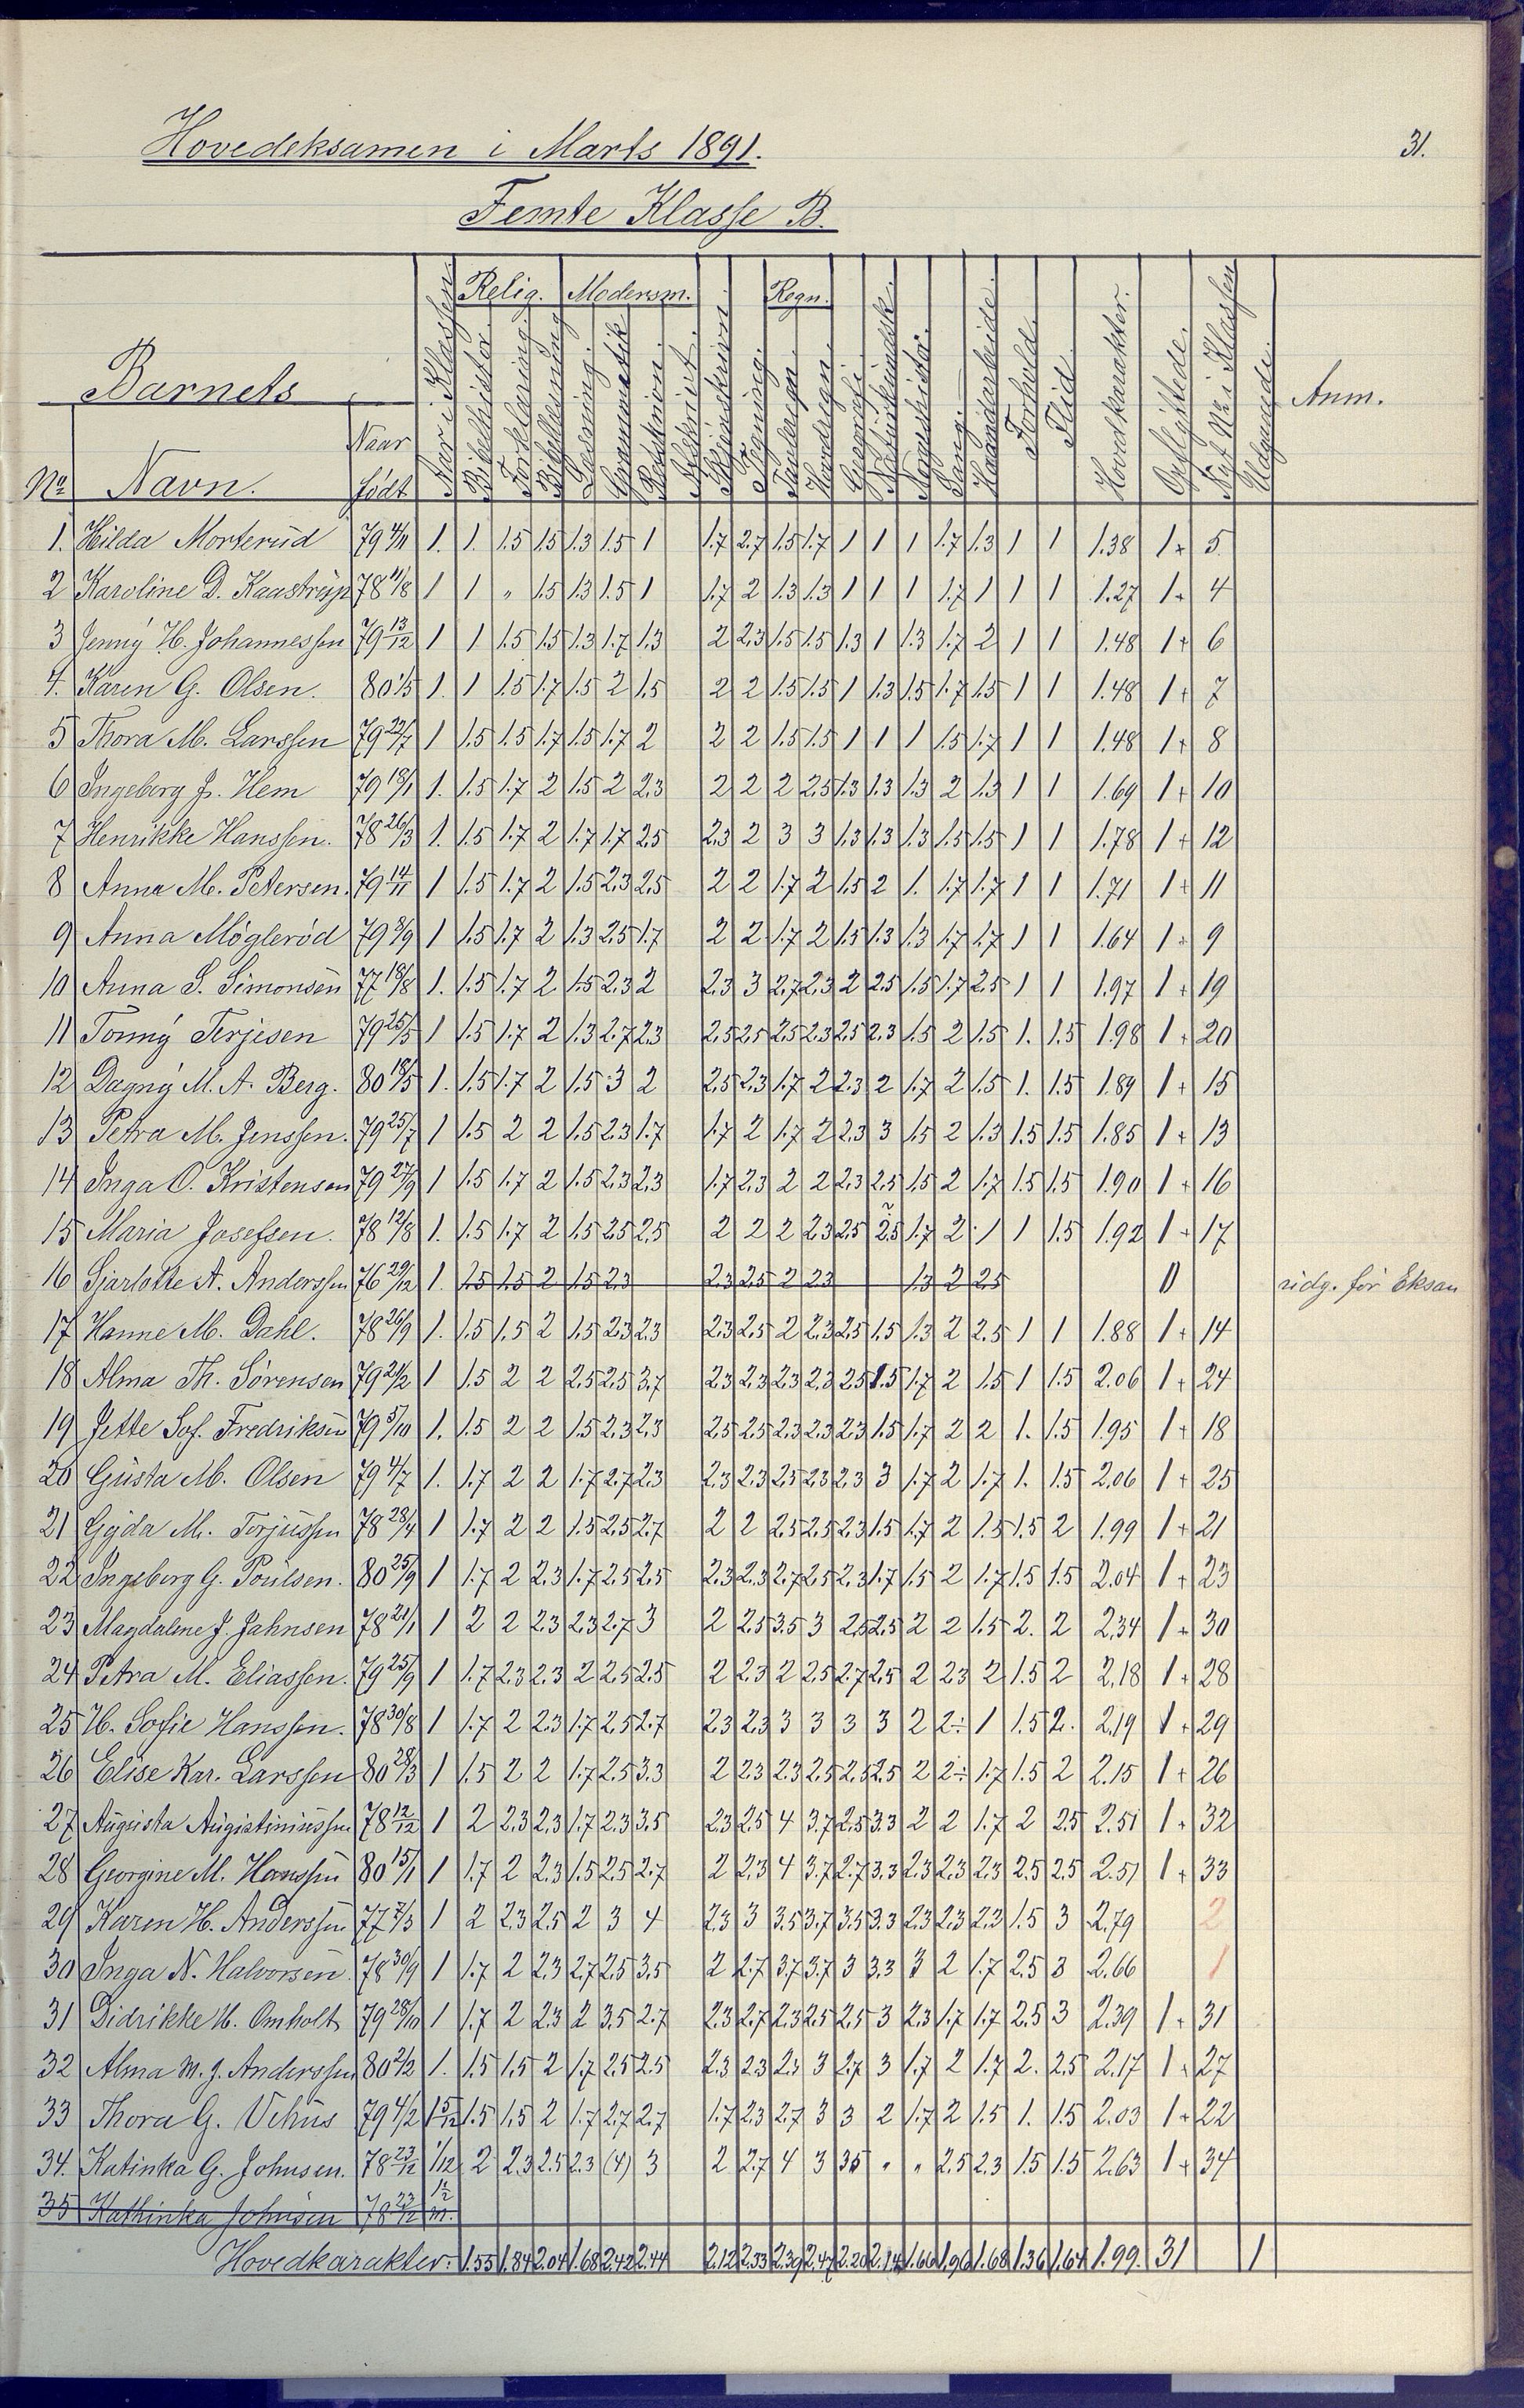 Hovedeksamen i Marts 1891.
31.
Femte Klasse B.
Relig. Modersm. Regn.
Barnets
Anm.
No Navn. Naar født Aar i Klassen. Bibelhistor. Forklaring. Læsning. Grammatik Retskrivn. Skjønskrivn. Tegning. Tavleregn. Hovedregn. Geografi. Naturkundsk. Sang. Haandarbeide. Forhold. Flid Hovedkarakter. Opflyttede. Nyt No i Klassen Udgaaede.
1. Hilda Morterud 79 4/11 1. 1. 1.5 1.5 1.3 1.5 1 1.7 2.7 1.5 1.7 1 1 1 1.7 1.3 1 1 1.38 1+ 5.
2 Karoline D. Kaastrup 78 11/8 1 1 " 1.5 1.3 1.5 1 1.7 2 1.3 1.3 1 1 1 1.7 1 1 1 1.27 1+ 4
3 Jenny H. Johannessen 79 13/12 1 1 1.5 1.5 1.3 1.7 1.3 2 2.3 1.5 1.5 1.3 1 1.3 1.7 2 1 1 1.48 1+ 6
4. Karen G. Olsen. 80 1/5 1. 1 1.5 1.7 1.5 2 1.5 2 2 1.5 1.5 1 1.3 1.5 1.7 1.5 1 1 1.48 1+ 7
5 Thora M. Larssen 79 22/7 1 1.5 1.5 1.7 1.5 1.7 2 2 2 1.5 1.5 1 1 1 1.5 1.7 1 1 1.48 1+ 8
6 Ingeborg J. Hem 79 18/1 1. 1.5 1.7 2 1.5 2 2.3 2 2 2 2.5 1.3 1.3 1.3 2 1.3 1 1 1.69 1+ 10
7 Henrikke Hanssen. 78 26/3 1. 1.5 1.7 2 1.7 1.7 2.5 2.3 2 3 3 1.3 1.3 1.3 1.5 1.5 1 1 1.78 1+ 12
8 Anna M. Petersen. 79 14/11 1 1.5 1.7 2 1.5 2.3 2.5 2 2 1.7 2 1.5 2 1. 1.7 1.7 1 1 1.71 1+ 11
9 Anna Møglerød 79 8/9 1 1.5 1.7 2 1.3 2.5 1.7 2 2 1.7 2 1.5 1.3 1.3 1.7 1.7 1 1 1.64 1+ 9
10 Anna S. Simonsen 77 18/8 1. 1.5 1.7 2 1.5 2.3 2 2.3 3 2.7 2.3 2 2.5 1.5 1.7 2.5 1 1 1.97 1+ 19
11 Tonny Terjesen 79 25/5 1 1.5 1.7 2 1.3 2.7 2.3 2.5 2.5 2.5 2.3 2.5 2.3 1.5 2 1.5 1. 1.5 1.98 1+ 20
12 Dagny M. A. Berg. 80 18/5 1. 1.5 1.7 2 1.5 3 2 2.5 2.3 1.7 2 2.3 2 1.7 2 1.5 1. 1.5 1.89 1+ 15
13 Petra M. Jenssen. 79 25/7 1 1.5 2 2 1.5 2.3 1.7 1.7 2 1.7 2 2.3 3 1.5 2 1.3 1.5 1.5 1.85 1+ 13
14 Inga O. Kristensen 79 27/9 1 1.5 1.7 2 1.5 2.3 2.3 1.7 2.3 2 2 2.3 2.5 1.5 2 1.7 1.5 1.5 1.90 1+ 16
15 Maria Josefsen. 78 12/8 1. 1.5 1.7 2 1.5 2.5 2.5 2 2 2 2.3 2.5 2.5 1.7 2 1 1 1.5 1.92 1+ 17
16 Sjarlotte A. Anderssen 76 29/12 1. 1.5 1.5 2 1.5 2.3 2.3 2.5 2 2.3 1.3 2 2.5 0 udg. før Eksam
17 Hanne M. Dahl. 78 26/9 1. 1.5 1.5 2 1.5 2.3 2.3 2.3 2.5 2 2.3 2.5 1.5 1.3 2 2.5 1 1 1.88 1+ 14
18 Alma Th. Sørensen 79 21/2 1 1.5 2 2 2.5 2.5 3.7 2.3 2.3 2.3 2.3 2.5 1.5 1.7 2 1.5 1 1.5 2.06 1+ 24
19 Jette Sof. Fredriksen 79 5/10 1. 1.5 2 2 1.5 2.3 2.3 2.5 2.5 2.3 2.3 2.3 1.5 1.7 2 2 1. 1.5 1.95 1+ 18
20 Gusta M. Olsen 79 4/7 1. 1.7 2 2 1.7 2.7 2.3 2.3 2.3 2.5 2.3 2.3 3 1.7 2 1.7 1. 1.5 2.06 1+ 25
21 Gyda M. Torjussen 78 28/4 1 1.7 2 2 1.5 2.5 2.7 2 2 2.5 2.5 2.3 1.5 1.7 2 1.5 1.5 2 1.99 1+ 21
22 Ingeborg G. Poulsen. 80 25/9 1 1.7 2 2.3 1.7 2.5 2.5 2.3 2.3 2.7 2.5 2.3 1.7 1.5 2 1.7 1.5 1.5 2.04 1+ 23
23 Magdalene J. Jahnsen 78 21/1 1 2 2 2.3 2.3 2.7 3 2 2.5 3.5 3 2.5 2.5 2 2 1.5 2. 2 2.34 1+ 30
24 Petra M. Eliassen. 79 25/9 1 1.7 2.3 2.3 2 2.5 2.5 2 2.3 2 2.5 2.7 2.5 2 2.3 2 1.5 2 2.18 1+ 28
25 H. Sofie Hanssen. 78 30/8 1 1.7 2 2.3 1.7 2.5 2.7 2.3 2.3 3 3 3 3 2 2÷ 1 1.5 2. 2.19 1+ 29
26 Elise Kar. Larssen 80 28/3 1 1.5 2 2 1.7 2.5 3.3 2 2.3 2.3 2.5 2.5 2.5 2 2÷ 1.7 1.5 2 2.15 1+ 26
27 Augusta Augistiniussen 78 12/12 1 2 2.3 2.3 1.7 2.3 3.5 2.3 2.5 4 3.7 2.5 3.3 2 2 1.7 2 2.5 2.51 1+ 32
28 Georgine M. Hanssen 80 15/1 1 1.7 2 2.3 1.5 2.5 2.7 2 2.3 4 3.7 2.7 3.3 2.3 2.3 2.3 2.5 2.5 2.51 1+ 33
29 Karen H. Anderssen 77 7/3 1 2 2.3 2.5 2 3 4 2.3 3 3.5 3.7 3.5 3.3 2.3 2.3 2.3 1.5 3 2.79 2
30 Inga N. Halvorsen 78 30/9 1 1.7 2 2.3 2.7 2.5 3.5 2 2.7 3.7 3.7 3 3.3 3 2 1.7 2.5 3 2.66 1
31 Didrikke H. Omholt 79 28/10 1 1.7 2 2.3 2 3.5 2.7 2.3 2.7 2.3 2.5 2.5 3 2.3 1.7 1.7 2.5 3 2.39 1+ 31
32 Alma M. J. Anderssen 80 2/2 1. 1.5 1.5 2 1.7 2.5 2.5 2.3 2.3 2.3 3 2.7 3 1.7 2 1.7 2. 2.5 2.17 1+ 27
33 Thora G. Vehus 79 4/2 1 5/12 1.5 1.5 2 1.7 2.7 2.7 1.7 2.3 2.7 3 3 2 1.7 2 1.5 1. 1.5 2.03 1+ 22
34. Katinka G. Johnsen. 78 23/12 1/12 2 2.3 2.5 2.3 (4) 3 2 2.7 4 3 3.5 " " 2.5 2.3 1.5 1.5 2.63 1+ 34
35 Kathinka Johnsen 78 23/12 1½ m.
Hovedkarakter: 1.55 1.84 2.04 1.68 2.42 2.44 2.12 2.33 2.39 2.47 2.20 2.14 1.66 1.96 1.68 1.36 1.64 1.99. 31 1